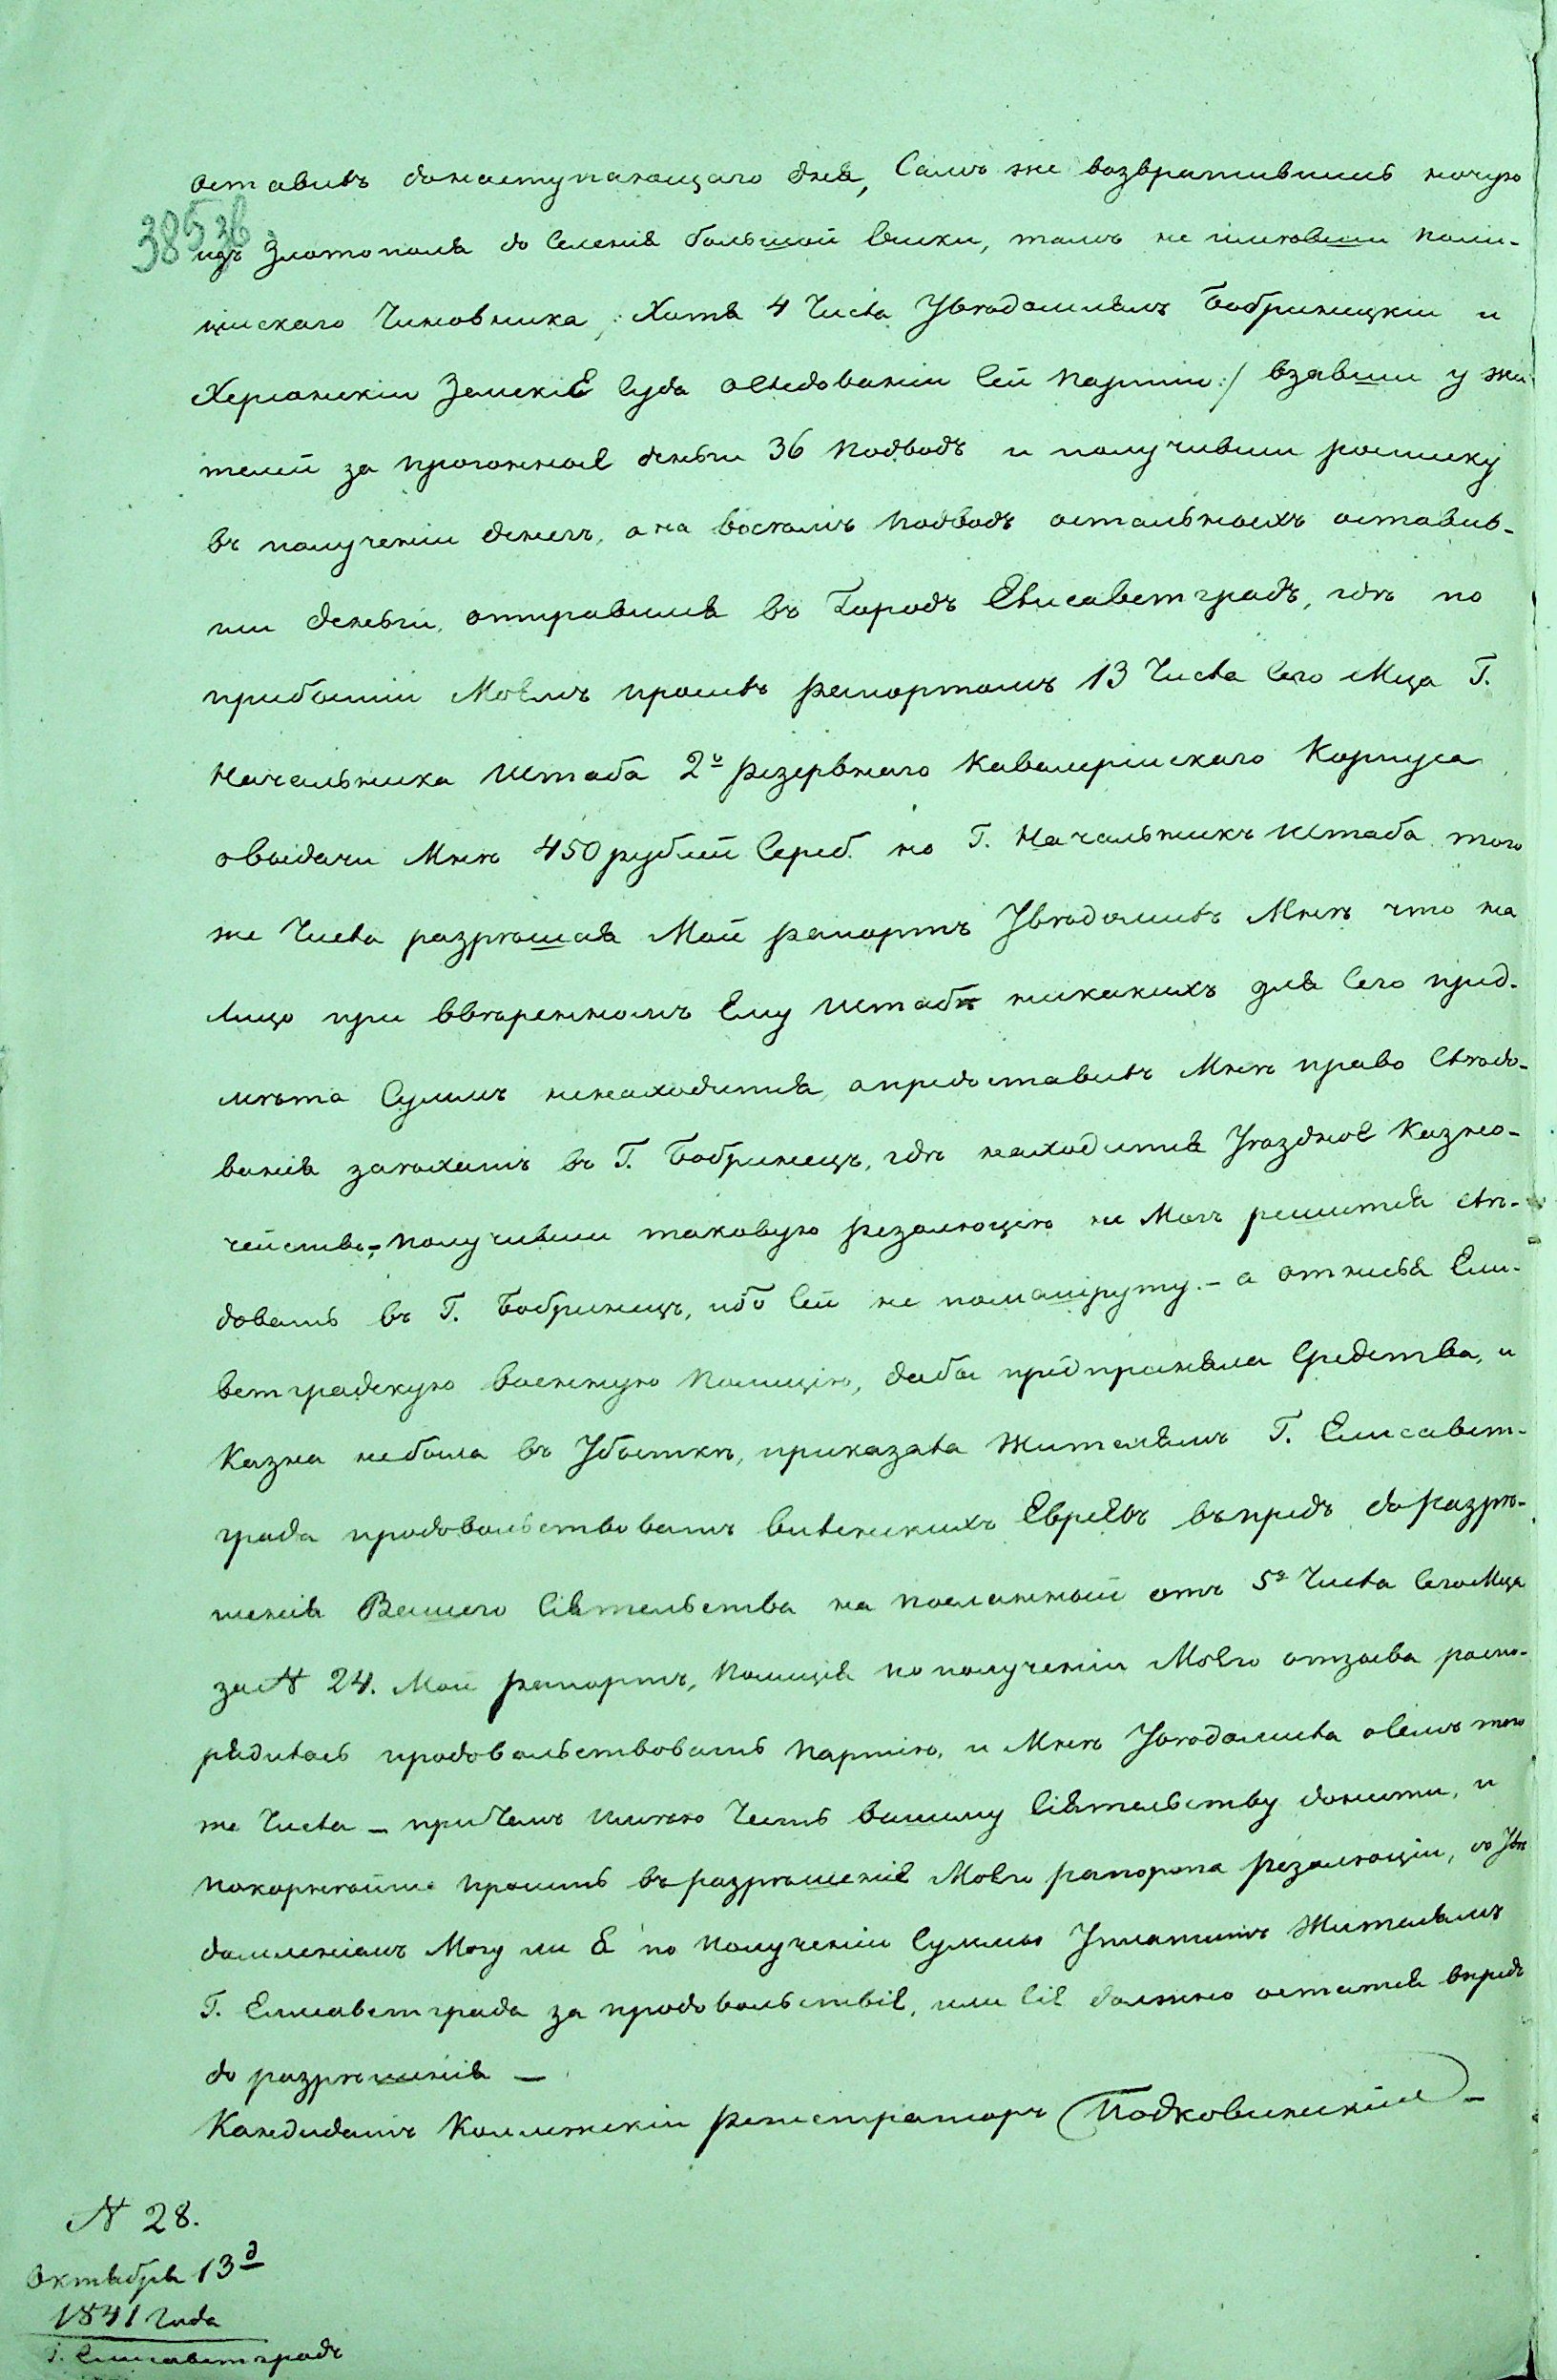 оставивъ донаступающаго дня, Самъ же возвратившись ночую
385 36
изъ Златополя до Селенія большой Виски, тамъ не имѣвши поли-
цискаго Чиновника, /: Хотя 4 Числа Увѣдомлялъ Бобринецкіи и
Херсонскіи Земскіе Суда ослѣдованіи Сей партіи :/ взавши у жи-
телей за прогонные деньги 36 подводъ и получивши росписку
въ полученіи денегъ, а на восемь подводъ остальныхъ оставив-
ши деньги, отправился въ Городъ Елисаветградъ, гдѣ по
прибытіи Моемъ просилъ рапортомъ 13 Числа Сего М-ца Г.
Начальника Штаба 2го резервнаго Кавалерискаго Корпуса
овыдачи Мнѣ 450 рублей Сереб. но Г. Начальникъ Штаба того
же Числа разрѣшая Мой рапортъ Увѣдомилъ Мнѣ что на
лицо при ввѣренномъ Ему Штабѣ никакихъ для Сего пред-
мѣта Суммъ ненаходится, апредоставилъ Мнѣ право Слѣдо-
ванія заѣхать въ Г. Бобринецъ, гдѣ находится Уѣздное Казно-
чейство, получивши таковую резолюцію не Могъ решится слѣ-
довать въ Г. Бобринецъ, ибо Сей не помаршруту. – а отнися Ели-
ветградскую военную полицію, дабы предприняла Средства, и
Казна небыла въ Убыткѣ, приказала Жителямъ Г. Елисавет-
града продовольствовать виленскихъ Евреевъ впредъ доразрѣ-
шенія Вашего Сіятельства на посланный отъ 5го Числа СегоМца
за N 24. Мой рапортъ, полиція по полученіи Моего отзыва распо-
рядилась продовольствовать партію, и Мнѣ Увѣдомила осемъ того
же Числа – причемъ имѣю Честь вашему Сіятельству донести, и
покорнѣйше просить въ разрѣшеніе Моего рапорта резолюціи, со Увѣ
домленіемъ Могу ли я по полученіи Суммы Уплатить Жителямъ
Г. Елисаветграда за продовольствіе, или Сіе должно остатся впредъ
до разрѣшенія –
Кандидатъ Коллежскіи регистраторъ
N 28.
Октября 13 д
1841 Года
Г. Елисаветградъ